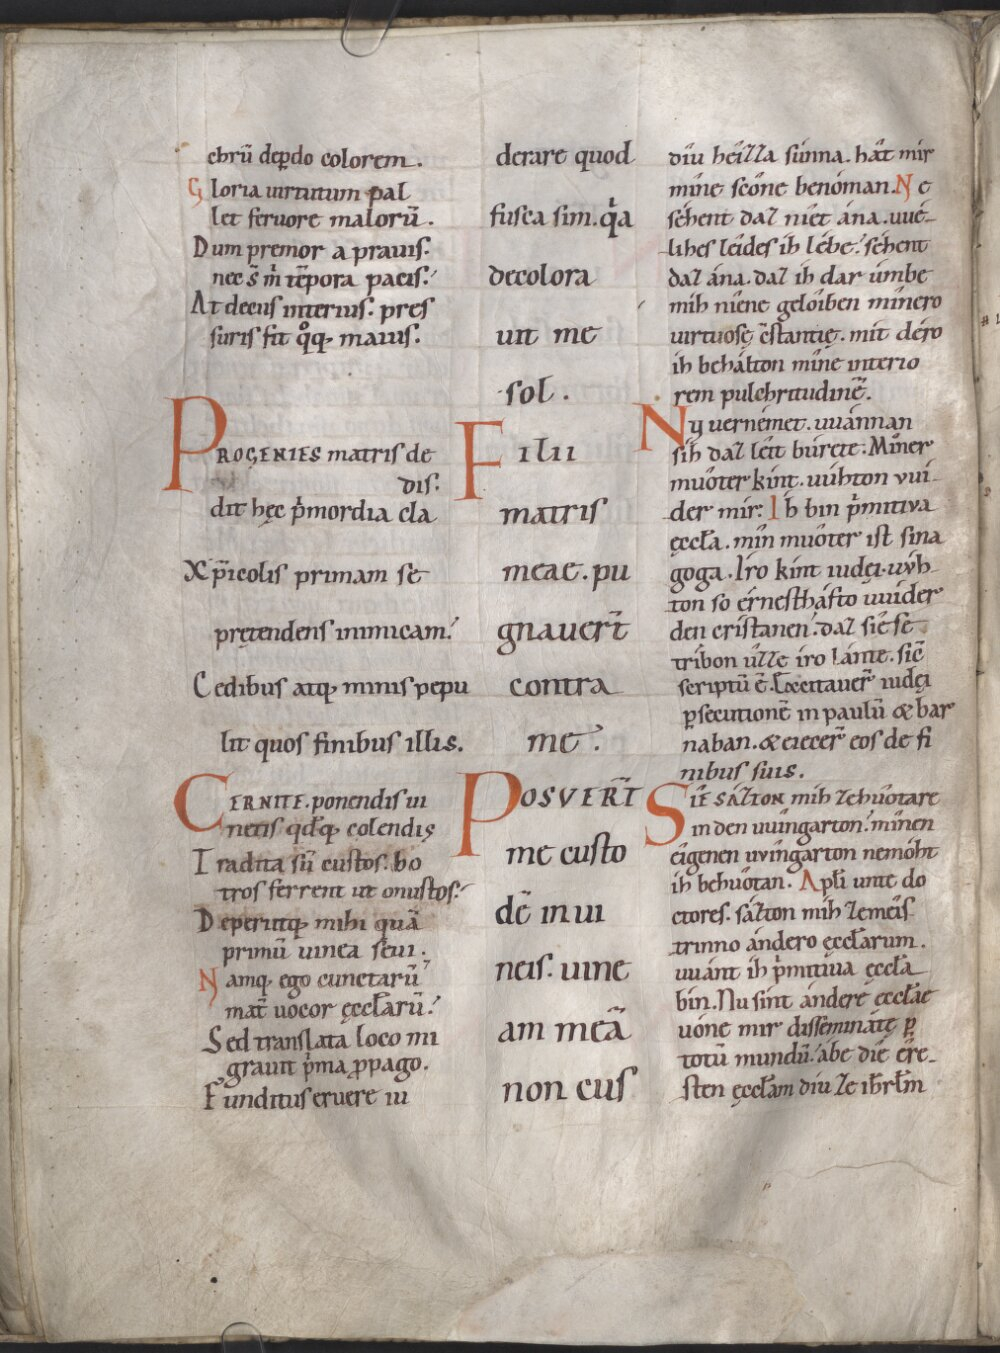 ebrū dep̄do colorem.
Gloria uirtutum pal
let feruore malorū.
Dum premor a prauis.
nec s̄ m̄ tēpora pacis:
At decus interius. pres
suris fit qͦq; maius.
PROGENIES matris de
dis:
dit hęc p̄mordia cla
Xp̄icolis primam se
prętendens inimicam:
Cedibus atq; minis pepu
lit quos finibus illis.
CERNITE. ponendis ui
netis qd'q; colendis
Tradita sū custos. bo
tros ferrent ut onustos:
Deperiitq; mihi quā
primū uinea seui.
Namq; ego cunctarū
mat̄ uocor ęccl̄arū:
Sed translata loco mi
grauit p̄ma p̄pago.
Funditus eruere iu
derare quod
fusca sim. q̄a
decolora
uit me
sol.
Filii
matris
meae. pu
gnauer̄t
contra
me.
POSVER̄T
me custo
dē in ui
neis. uine
am meā
non cus
dîu hêizza súnna. hât mir
mîne scône benóman. Ne
séhent daz nîet ána. uué-
lihes lêides ih lébe. séhent
daz ána. daz ih dar úmbe
mih nîene gelôiben mînero
virtuosę c̄stantię. mit déro
ih behálton mîne interio
rem pulchritudinē.
Nu uernémet. uuánnan
sih daz lêit búrete. Mîner
muôter kint. uúhton vui-
der mir: Ih bin p̄mitiva
ęccl̄a. mîn muôter ist sina
goga. Iro kint iudęi. uvh-
ton so érnesthâfto uuider
den cristanen. daz sîe se
tribon ûzze iro lánte. sîē
scriptū ē. Cōcitauer̄ iudęi
p̄secutionē in paulū & bar
naban. & eiecer̄ eos de fi
nibus suis.
SÎE SÁZTON mih ze huôtare
in den uuîngarton. mînen
êigenen uvîngarton nemóht
ih behuôtan. Apl̄i unte do
ctores. sázton mih ze mêis
trinno ándero ęccl̄arum.
uuánt ih p̄mitiua ęccl̄a
bin. Nu sint ándere ęccl̄ae
uóne mir dissēminátę p̄
totū mundū. ábe dîe êre-
sten ęccl̄am dîu ze ih̄rl̄m